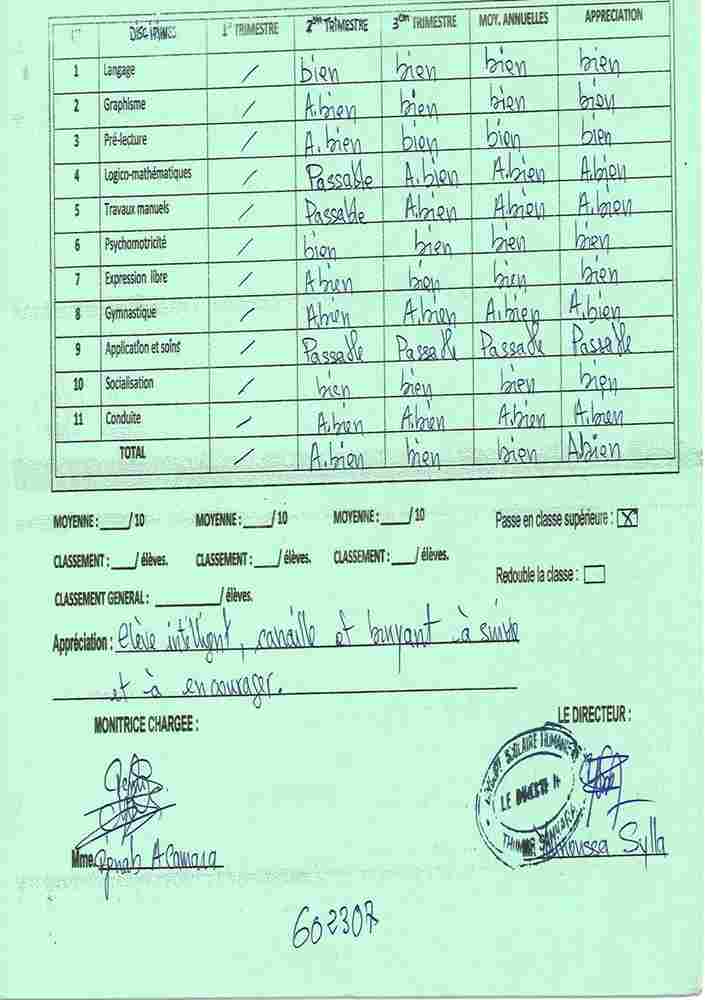 N° DISCIPLINES 1er TRIMESTRE 2ème TRIMESTRE 3ème TRIMESTRE MOY. ANNUELLES APPRECIATION
1 Langage / bien bien bien bien
2 Graphisme / A.bien bien bien bien
3 Pré-lecture / A.bien bien bien bien
4 Logico-mathématiques / Passable A.bien A.bien A.bien
5 Travaux manuels / Passable A.bien A.bien A.bien
6 Psychomotricité / bien bien bien bien
7 Expression libre / A bien bien bien bien
8 Gymnastique / Abien A.bien A.bien A.bien
9 Application et soins / Passable Passable Passable Passable
10 Socialisation / bien bien bien bien
11 Conduite / A.bien A.bien A.bien A.bien
TOTAL / A.bien bien bien Abien
MOYENNE : ____/ 10 MOYENNE : ____/ 10 MOYENNE : ____/ 10 Passe en classe supérieure : X
CLASSEMENT : ___/ élèves. CLASSEMENT : ___/ élèves. CLASSEMENT : ___/ élèves.
Redouble la classe :
CLASSEMENT GENERAL : ________/ élèves.
Appréciation : elève intelligent, canaille et bruyant à suivre
et à encourager.
MONITRICE CHARGEE : LE DIRECTEUR :
SCOLAIRE
LE
Mme. A Camara Sylla
602307